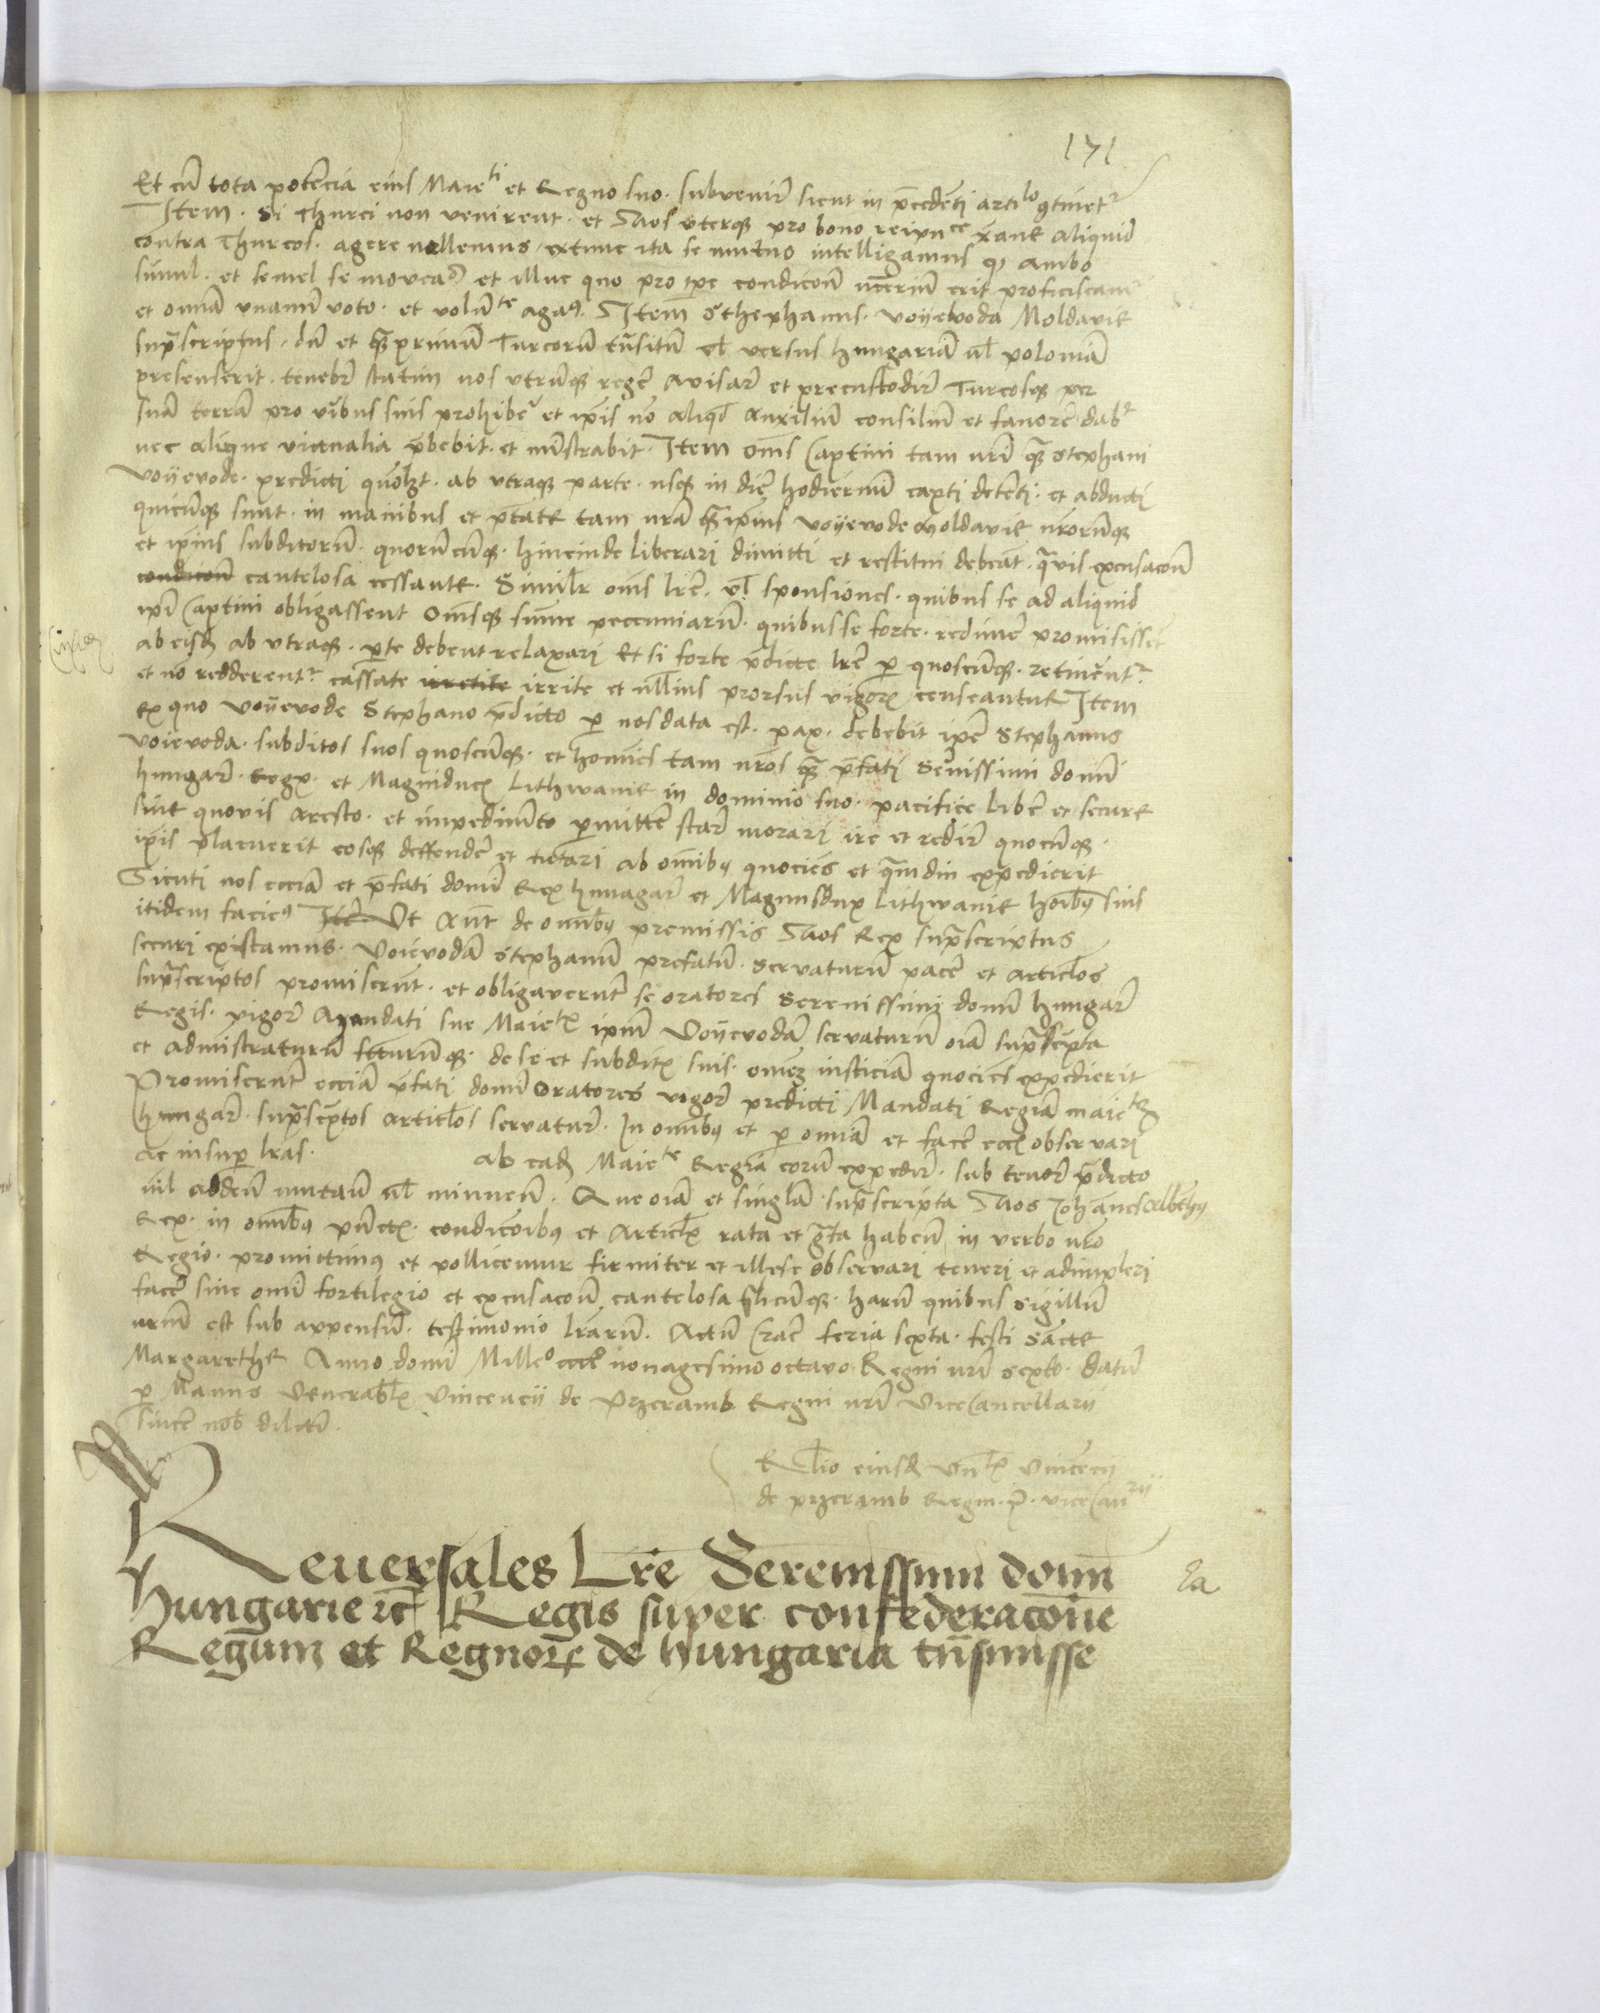 171
Et cu̅ tota pote̅cia eius Maieti et Regno suo · subvenire̅ sicut in p̅cede̅ti articlo 9tinetr
Item · Si Thurci non venirent · et Nos uterq̧ pro bono reipu̅ce x̅ane aliquid
contra Thurcos · agere nollemus / extunc ita se mutuo intelligamus q̧ ambo
simul · et semel se movea9 et illuc quo pro tp̅e condic̅on̅ nc̅c̅rium erit proficiscam̅r
et om̅i̅a̅ unanimi voto · et volu̅te aga9. Item Sthephanus · Voyevoda Moldavie
sup̅rscriptus / du̅ et q̅̅primu̅ Turcoru̅ tr̅situ̅ vl̅ versus hungaria̅ vl̅ polonia̅
presenserit · tenebr̅ statim nos utru̅q̧ rege̅ avisar̅ et precustodir̅ Turcosq̧ per
sua̅ terra̅ pro virbus suis prohiber̅ et ip̅is no̅ aliqd̅ auxiliu̅ consiliu̅ et favore̅ dabt
nec aliqua victualia p̅bebit · et mi̅strabit · Item om̅s Captivi tam nr̅i q̅̅ Stephani
Voyevode · predicti quolz̅t · ab utraq̧ parte · usq̧ in die̅ hodiernu̅ capti dete̅ti · et abducti
quicu̅q̧ sunt · in manibus et p̅tate tam nr̅a q̅̅ ip̅ius Voyevode Moldavie nr̅oru̅q̧
et ip̅ius subditoru̅ · quoru̅cu̅q̧ · hincinde liberari dimitti et restitui debea̅t · q̅vis excusac̅on̅
condicon̅ cautelosa cessante · Similr̅ om̅s lr̅e · vl̅ sponsiones · quibus se ad aliquid
ip̅i Captivi obligassent Om̅sq̧ sum̅e pecuniaru̅ · quibus se forte · redimer̅ promisisse̅t
ab eisd̅ ab utraq̧ · p̅te debent relaxari Et si forte p̅dicte lr̅e p̅ quoscu̅q̧ · retinere̅tr
et no̅ redderentr cassate irretite irrite et nll̅ius prorsus vigor̅ censeantur Item
Ex quo Voyevode Stephano p̅dicto p̅ nos data est · pax · debebit ip̅e Stephanus
Voievoda · subditos suos quoscu̅q̧ · et ho̅ies tam nr̅os q̅̅ p̅fati Ser̅nissimi domi̅
hungar̅ · Regis · et Magniducis Lithwanie in dominio suo · pacifice liber̅ et secure
sine quovis aresto · et impedime̅to p̅mitter̅ star̅ morari ire et redir̅ quocu̅q̧ ·
ip̅is placuerit eosq̧ deffender̅ et tutari ab om̅ibȝ quocie̅s et q̅̅diu expedierit
Sicuti nos ec̅cia̅ et p̅fati domi̅ Rex hungar̅ et Magnusdux Lithwanie ho̅i̅bȝ suis
itidem facie9 Ite̅ Ut Au̅t de om̅ibȝ premissis Nos Rex sup̅rscriptus
securi existamus · Voievoda̅ Stephanu̅ prefatu̅ · servaturu̅ pace̅ et articl̅os
sup̅rscriptos promiseru̅t · et obligaveru̅t se oratores Serenissimi domi̅ hungar̅
Regis · vigor̅ Mandati sue Maietis ipm̅ Voyevoda̅ servaturu̅ o̅i̅a̅ sup̅rsc̅pta
et admi̅straturu̅ fcturu̅q̧ · de se et subditis suis · om̅ez iusticia̅ quocie̅s expedierit
Promiseru̅t ec̅cia̅ p̅fati domi̅ Oratores vigor̅ predicti Mandati Regia̅ maiete̅
hungar̅ · sup̅rsc̅ptos articl̅os servatur̅ · In om̅ibȝ et p̅ omnia̅ et facer̅ ec̅ci̅ observari
ac insup̅ lr̅as · ab ead̅ Maiete Regia eoru̅ expedir̅ · sub tenor̅ p̅dicto
nil adden̅ mutan̅ vl̅ minuen̅ · Que o̅i̅a̅ et singl̅a sup̅rscripta Nos Joha̅nes Albertus
Rex · in om̅ibȝ pu̅ctis · condicio̅ibȝ et Articl̅is rata et gr̅ta haben̅ in verbo nr̅o
Regio · promittimus et pollicemur firmiter et illese observari teneri et adimpleri
facer̅ sine om̅i sortilegio et excusacon̅ cautelosa q̅licu̅q̧ · haru̅ quibus Sigillu̅
nr̅um est sub appensu̅ · testimonio lr̅aru̅ · Actu̅ Crac̅ feria sexta · festi Sa̅cte
Margarethe Anno domi̅ Millo cccco nonagesimo octavo · Regni nr̅i sexto · Datu̅
p̅ Manus Venerabl̅is Vincencii de Przeramb Regni nr̅i Vicecancellarii
sincer̅ nob̅ dilecti̅ ·
Rl̅io eiusd̅ Vn̅lis Vincencij
de przeramb Regni · P · vicecan̅rij
Reuersales Lr̅e Serenissimi domi̅
hungarie ꝛc̅ Regis super confederacon̅e
Regum et Regnor̅ de hungaria tr̅smisse